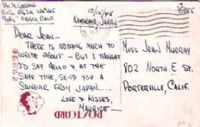 10/5/45
FREE
DEAR JEAN-
THERE IS NOTHING MUCH TO
WRITE ABOUT - BUT I THOUGHT
I'D SAY HELLO & AT THE
SAME TIME, SEND YOU A
SOUVENIR FROM JAPAN....
LOVE & KISSES,
MAURICE
MISS JEAN MURRAY
802 NORTH E ST.
PORTERVILLE, CALIF.
POST CARD